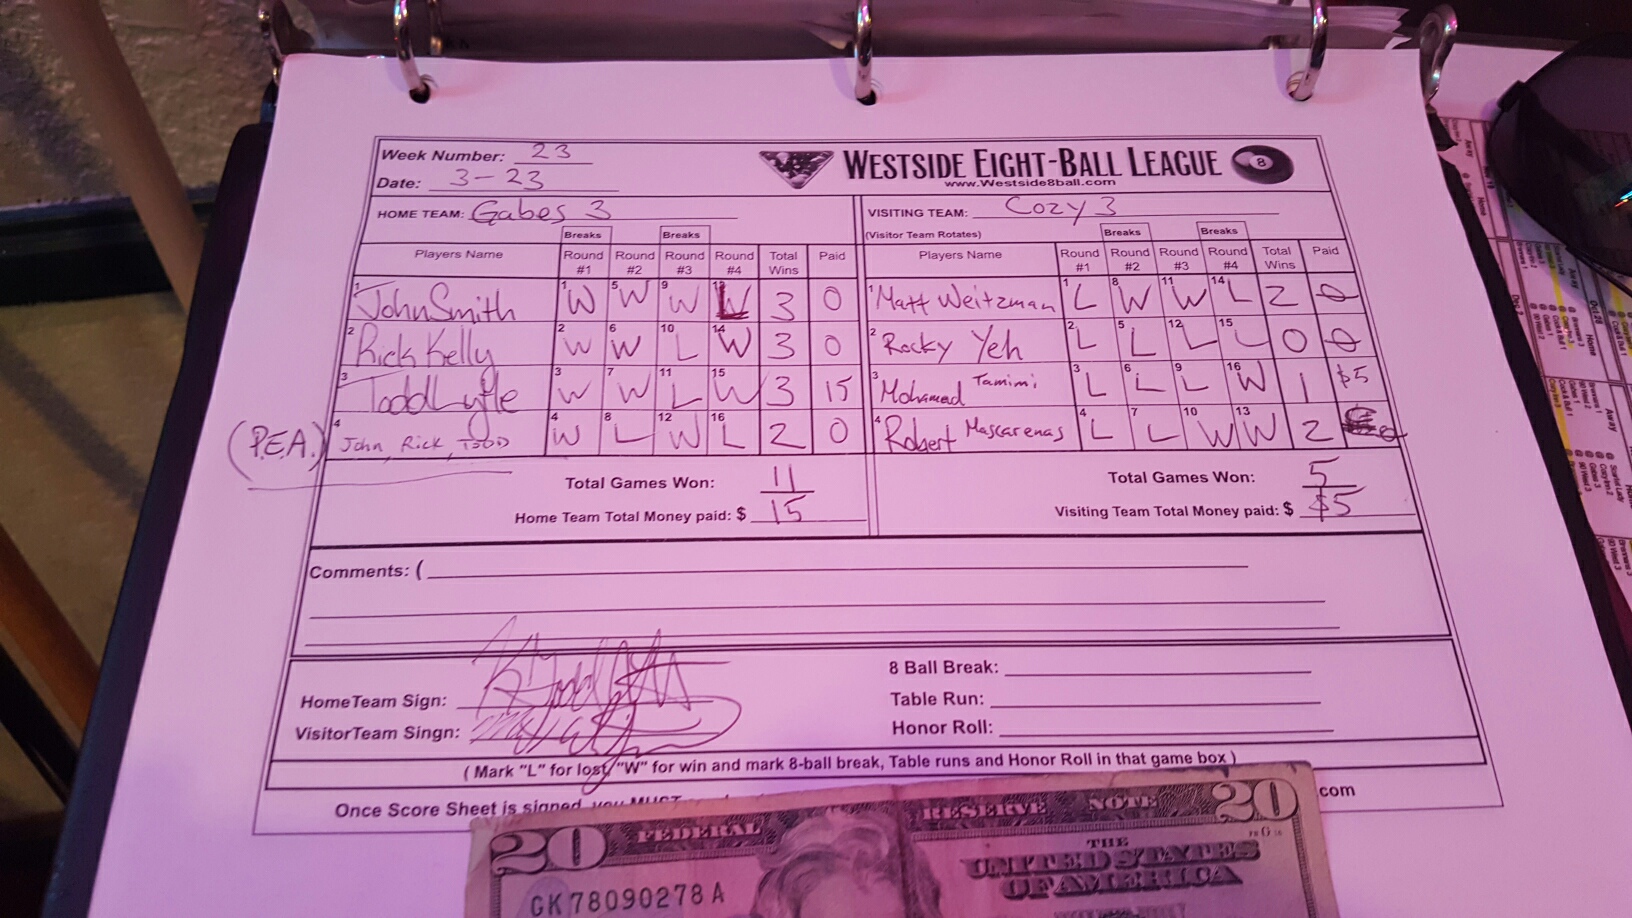 Week Number: 23
Date: 3-23
WESTSIDE EIGHT-BALL LEAGUE
8
www.Westside8ball.com
HOME TEAM: Gabes 3
VISITING TEAM: Cozy 3
(Visitor Team Rotates)
Breaks Breaks Breaks Breaks
Players Name Round #1 Round #2 Round #3 Round #4 Total Wins Paid Players Name Round #1 Round #2 Round #3 Round #4 Total Wins Paid
1 John Smith 1 W 5 W 9 W 13 L 3 0 1 Matt Weitzman 1 L 8 W 11 W 14 L 2 0
2 Rick Kelly 2 W 6 W 10 L 14 W 3 0 2 Rocky Yeh 2 L 5 L 12 L 15 L 0 0
3 Todd Lyfle 3 W 7 W 11 L 15 W 3 15 3 Mohamed Tamimi 3 L 6 L 9 L 16 W 1 $5
(P.E.A.) 4 John, Rick, TODD 4 W 8 L 12 W 16 L 2 0 4 Robert Mascarenas 4 L 7 L 10 W 13 W 2 0
Total Games Won: 11
Total Games Won: 5
Home Team Total Money paid: $ 15
Visiting Team Total Money paid: $ $5
Comments: (
HomeTeam Sign:
VisitorTeam Singn:
8 Ball Break:
Table Run:
Honor Roll:
( Mark "L" for lost, "W" for win and mark 8-ball break, Table runs and Honor Roll in that game box )
Once Score Sheet is signed, you MUST
com
20 FEDERAL RESERVE NOTE 20
THE
UNITED STATES
OF AMERICA
GK 78090278 A